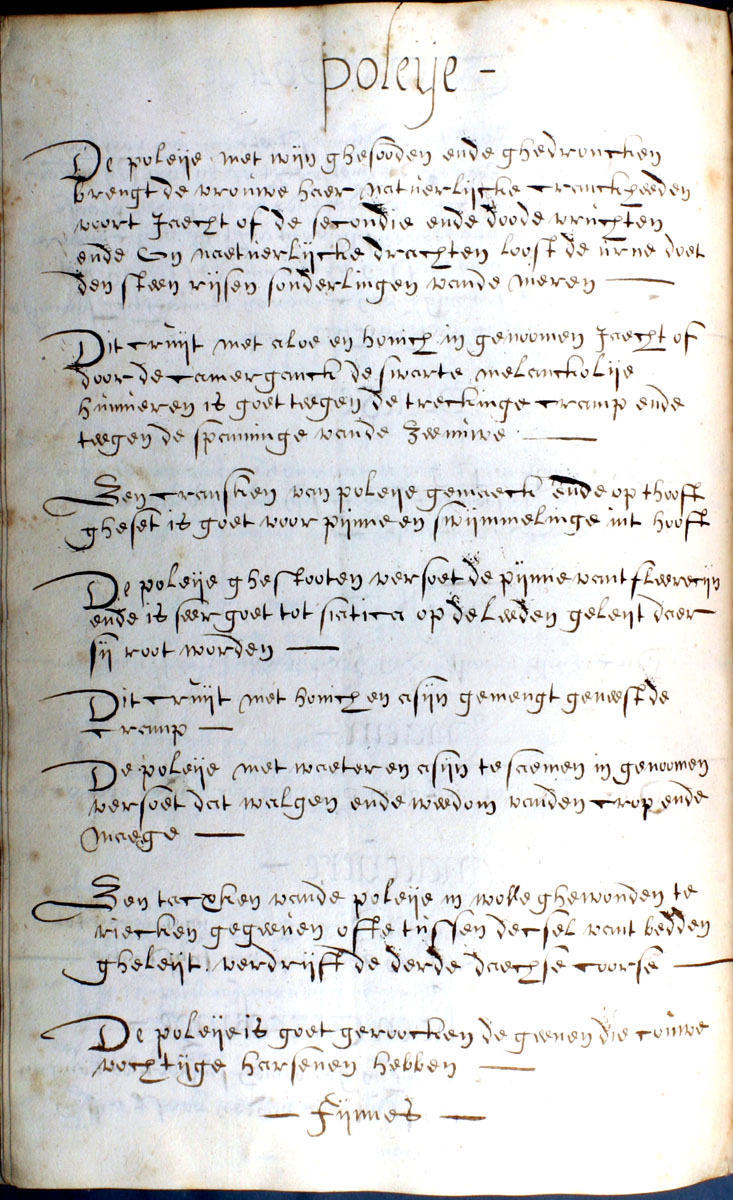 poleije -
De poleije met wijn ghesooden ende ghedroncken
brengt de vrouwe haer natuerlijcke cranckheeden
voort Jaecht of de secondie ende doode vruchten
ende On naetuerlijcke drachten loost de urne doet
den steen rijsen sonderlingen vande nieren —
Dit cruijt met aloe en honich in genoomen Jaecht of
door de camerganck de swarte melanckolije
humueren is goet teegen de treckinge cramp ende
teegen de spanninge vande Zeenuwe —
Een cransken van poleije gemaeck ende op thooft
gheset is goet voor pijnne en swijmmelinge int hooft
De poleije ghestooten versoet de pijnne vant fleerecijn
ende is seer goet tot siatica op de leeden geleijt daer
sij root worden —
Dit cruijt met honich en asijn gemengt geneest de
cramp —
De poleije met waeter en asijn te saemen in genoomen
versoet dat walgen ende weedom vanden crop ende
maege —
Een tacxken vande poleije in wolle ghewonden te
riecken gegeeven ofte tussen decsel vant bedden
gheleijt verdrijft de derde daechse coorse —
De poleije is goet geroocken de geenen die couwe
vochtijge harsenen hebben —
— Fijnnes —